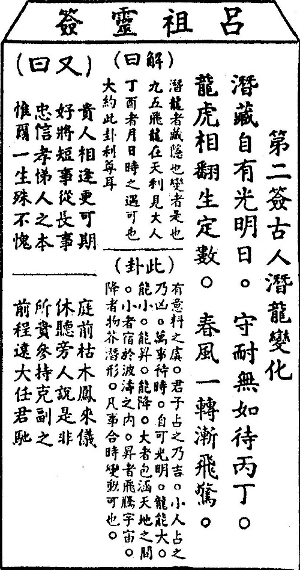 呂祖靈簽
第二簽古人潛龍變化
潛藏自有光明日。守耐無如待丙丁。
龍虎相翻生定數。春風一轉漸飛驚。
(解曰)
潛龍者藏隱也變者是也
九五飛龍在天利見大人
丁酉者月日時之遇可也
大約此卦利尊耳
(此卦)
有意料之虞。君子占之乃吉。小人占之
乃凶。萬事待時。自可光明。龍能大。
龍小。能昇。龍降。大者包涵天地之間
。小者宿於波濤之內。昇者飛騰宇宙。
降者物吝潛形。凡事合時變動可也。
(又曰)
貴人相逢更可期
好將短事從長事
忠信孝悌人之本
惟爾一生殊不愧
庭前枯木鳳來儀
休聽旁人說是非
所貴參持克副之
前程遠大任君馳